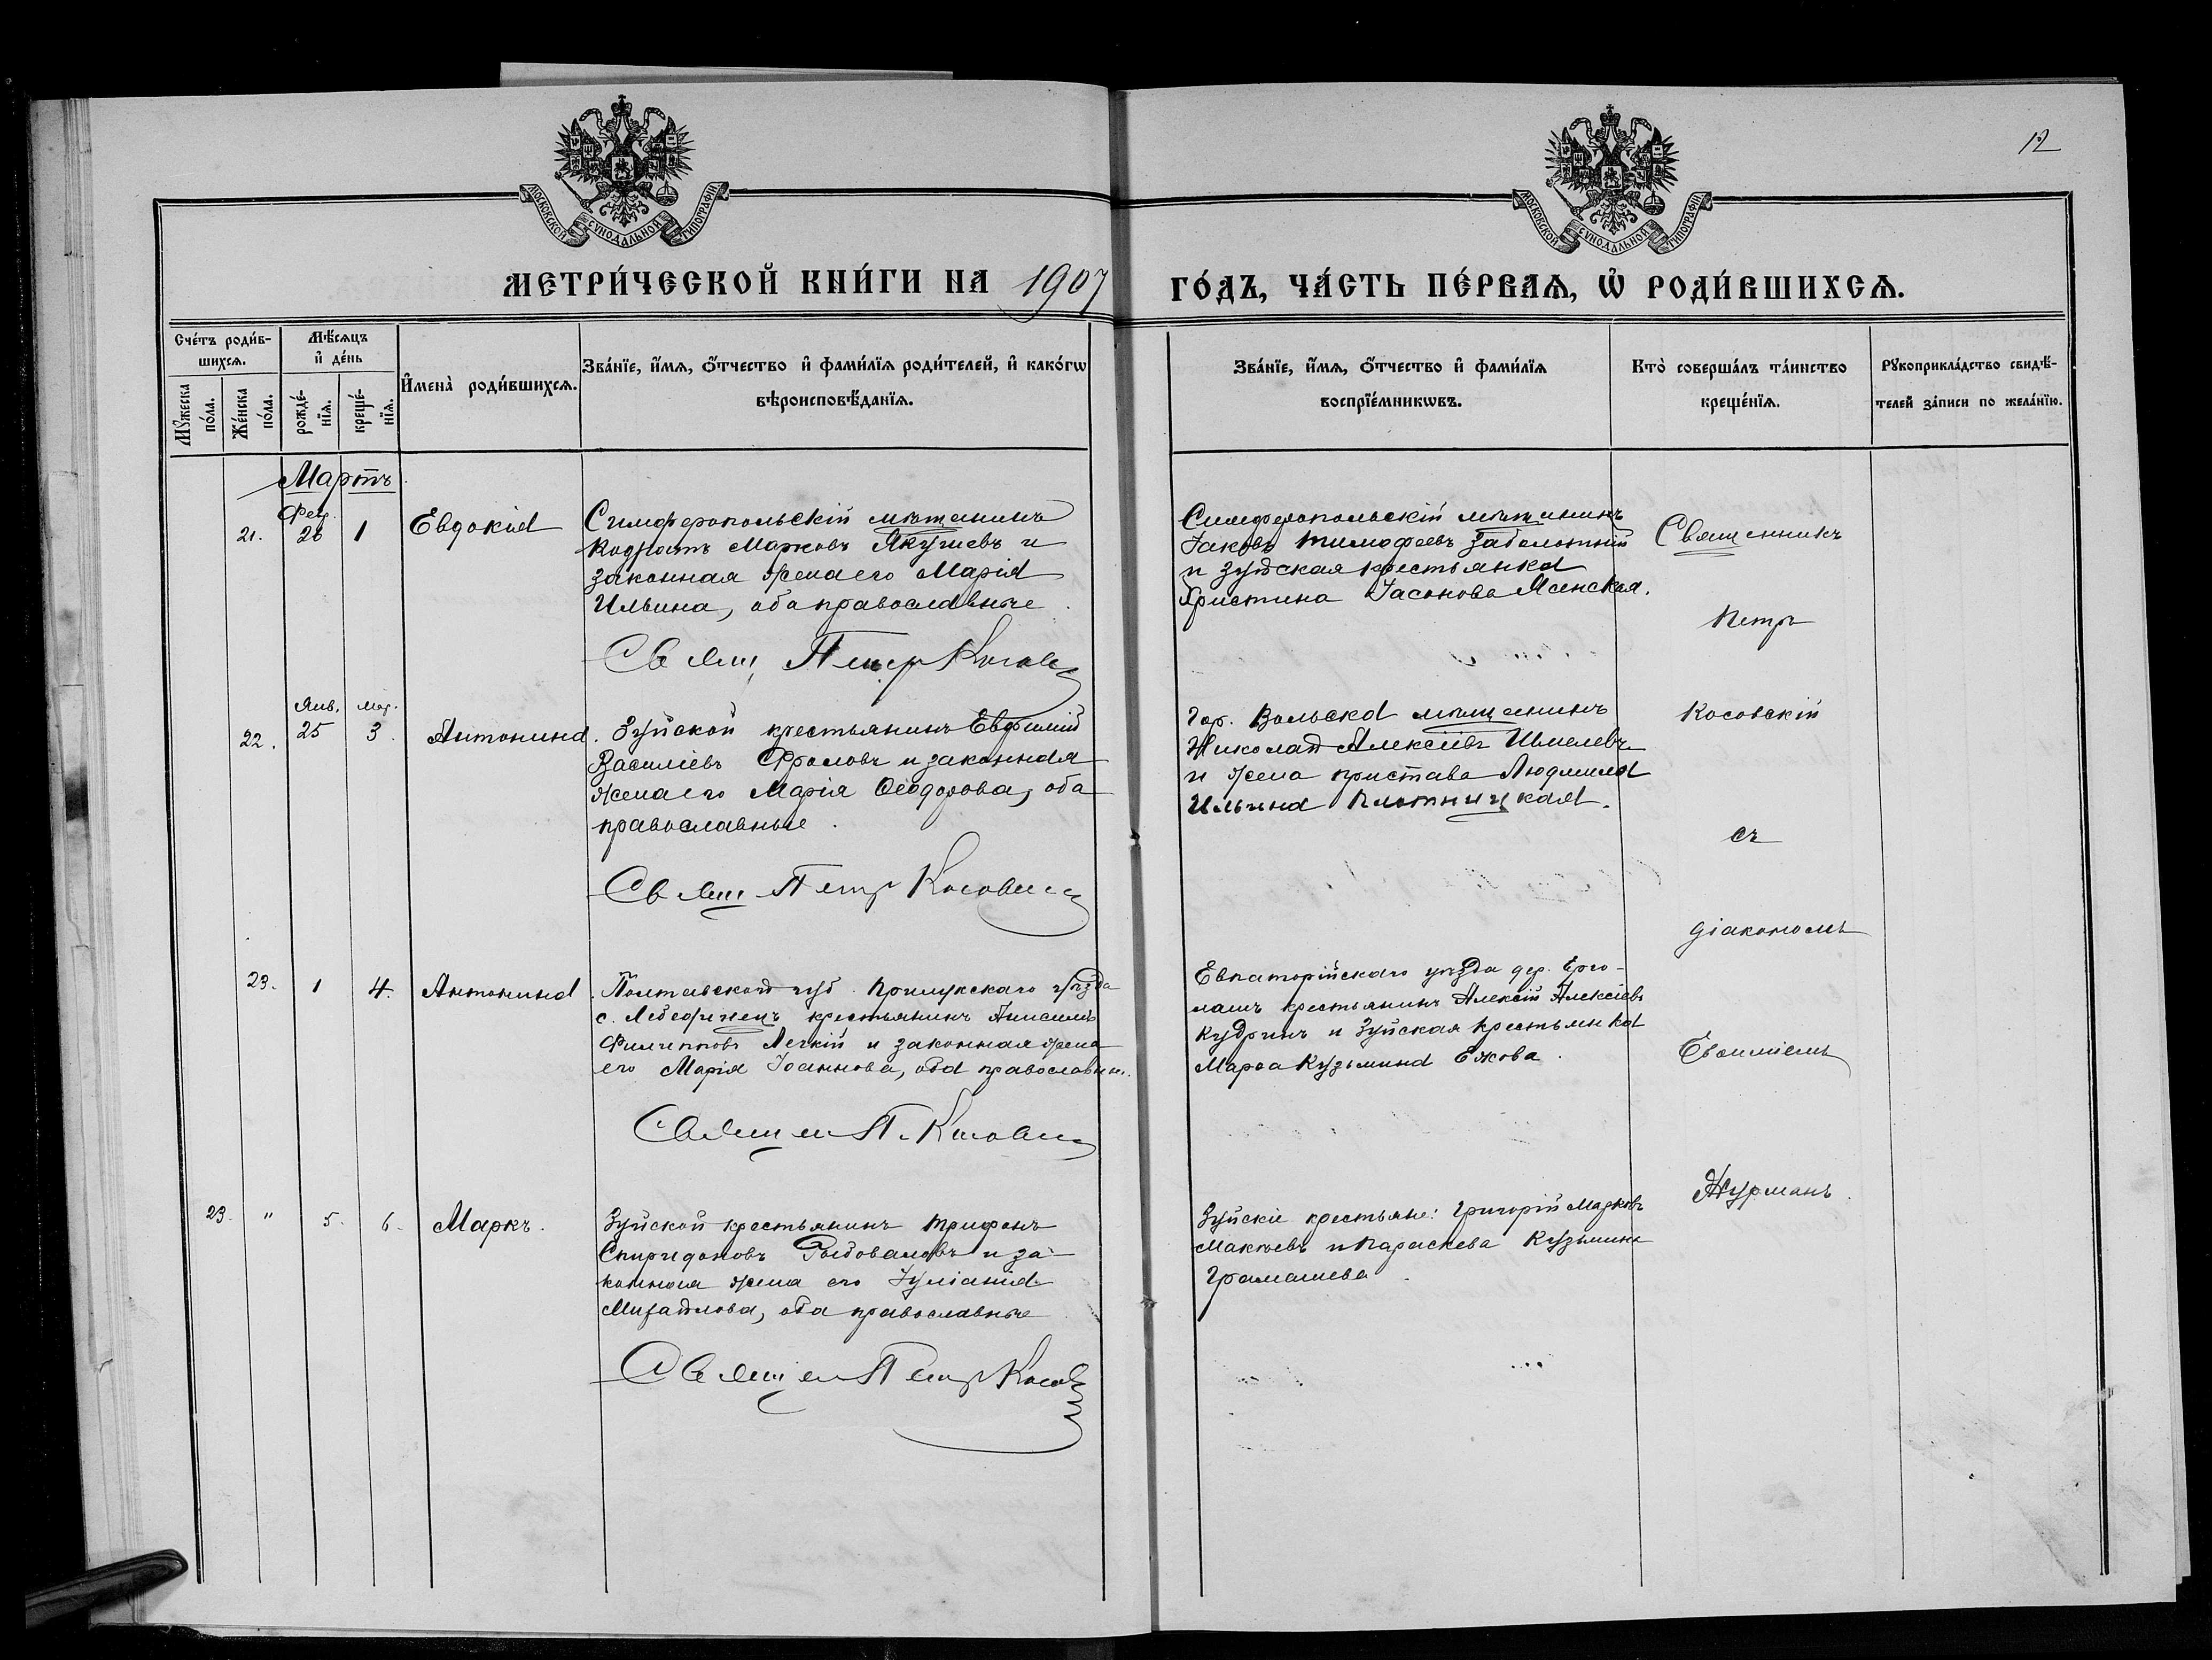 12
МОСКОВСКОЙ СѴНОДАЛЬНОЙ ТИПОГРАФІИ
МОСКОВСКОЙ СѴНОДАЛЬНОЙ ТИПОГРАФІИ
МЕТРИ́ЧЕСКОЙ КНИ́ГИ НА 1907 ГО́ДЪ, ЧА́СТЬ ПЕ́РВАѦ, Ѡ҆ РОДИ́ВШИХСѦ.
Сче́тъ роди́в-
шихсѧ.
Мꙋжеска
по́ла.
Же́нска
по́ла.
Мѣ́сѧцъ
и҆ де́нь
рожде́-
нїѧ.
креще́-
нїѧ.
И҆мена̀ роди́вшихсѧ.
Зва́нїе, и҆́мѧ, ѻ҆́тчество и҆ фами́лїѧ роди́телей, и҆ како́гѡ
вѣроисповѣ́данїѧ.
Зва́нїе, и҆́мѧ, ѻ҆́тчество и҆ фами́лїѧ
воспрїе́мникѡвъ.
Кто̀ соверша́лъ та́инство
креще́нїѧ.
Рꙋкоприкла́дство свидѣ́-
телей за́писи по жела́нїю.
Мартъ
21.
Фев.
26
1
Евдокія
Симферопольскій мѣщанинъ
Кодратъ Марковъ и
законная жена его Марія
Ильина, оба православные
Свящ Петр
Симферопольскій мѣщанинъ
Іаковъ Тимофеевъ Заболотній
и Зуйская крестьянка
Христина Іасонова Ясенская.
Священникъ
Петръ
Косовскій
съ
діакономъ
Евѳиміемъ
Журманъ
22.
Янв.
25
мар.
3.
Антонина.
Зуйской крестьянинъ Евфимій
Василіевъ Фроловъ и законная
жена его Марія Ѳеодорова, оба
православные.
Свящ Петр
Гор. Вольска мѣщанинъ
Николай Алексіевъ
и жена пристава Людмила
Ильина Плотницкая.
23.
1
4.
Антонина.
Полтавской губ. Прилукскаго уѣзда
с. крестьянинъ Анисимъ
Филипповъ Легкій и законная жена
его Марія Іоаннова, оба православн.
П.
Евпаторійскаго уѣзда дер.
крестьянинъ Алексій Алексіевъ
Кудринъ и Зуйская крестьянка
Марѳа Кузьмина Ежова.
23.
"
5.
6.
Маркъ.
Зуйской крестьянинъ Трифонъ
Спиридоновъ и за-
конная жена его Іуліанія
Михайлова, оба православные
Петр
Зуйскіе крестьяне: Григорій Марковъ
и Параскева Кузьмина